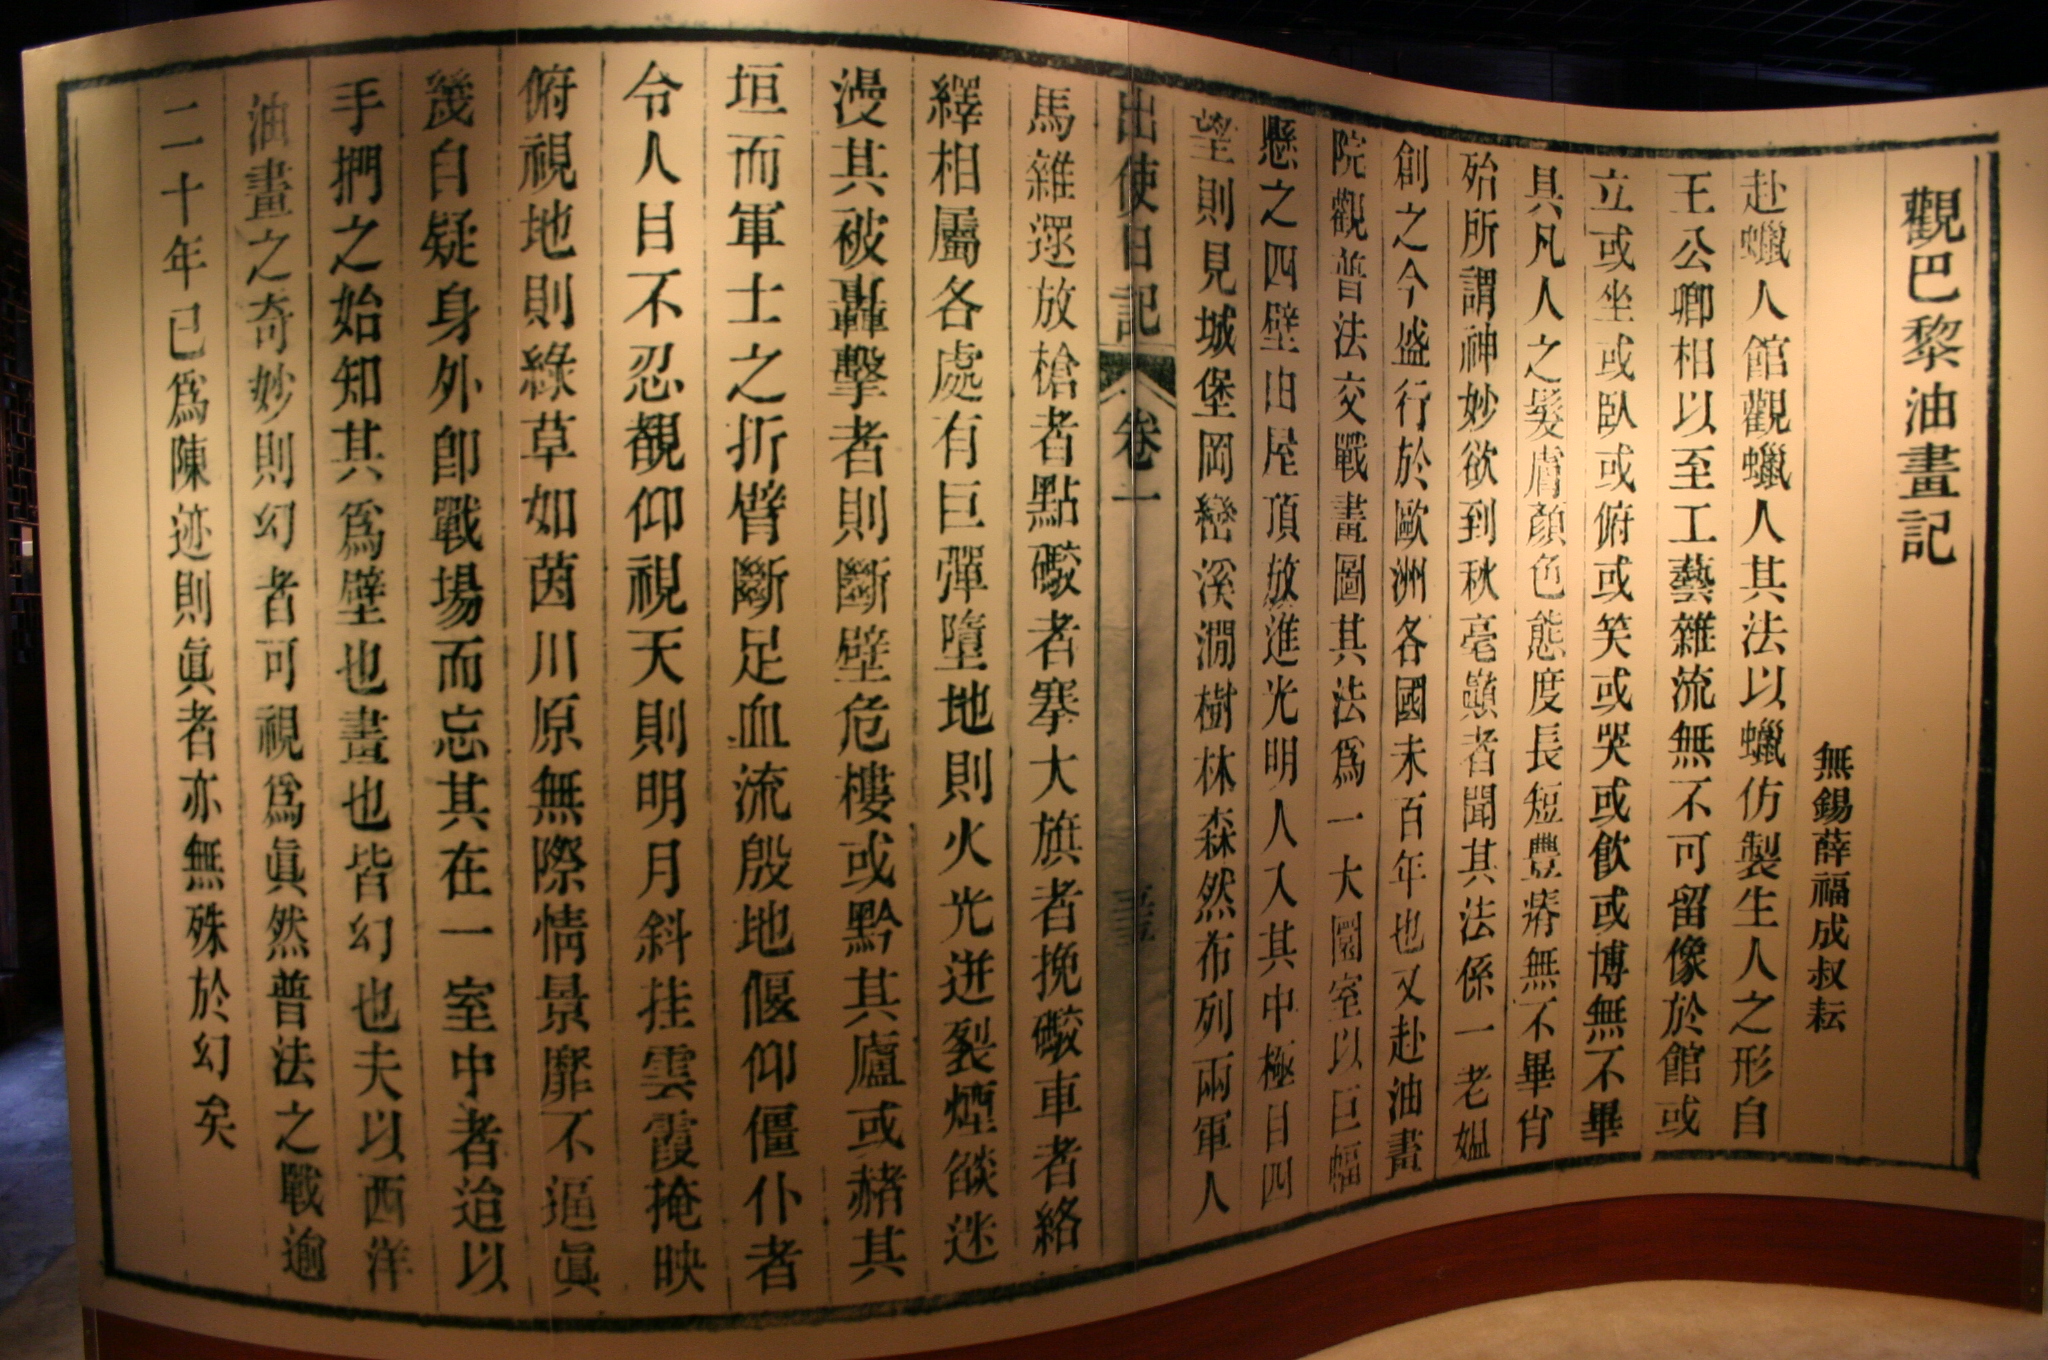 觀巴黎油畫記
無錫薛福成叔耘
赴蠟人館觀蠟人其法以蠟仿製生人之形自
王公卿相以至工藝雜流無不可留像於館或
立或坐或臥或俯或笑或哭或飲或博無不畢
具凡人之髮膚顏色態度長短豐瘠無不畢肖
殆所謂神妙欲到秋毫巔者聞其法係一老媼
創之今盛行於歐洲各國未百年也又赴油畫
院觀普法交戰畫圖其法為一大圜室以巨幅
懸之四壁由屋頂放進光明人入其中極目四
望則見城堡岡巒溪澗樹林森然布列兩軍人
出使日記 卷一
馬雜遝放槍者點礮者搴大旗者挽礮車者絡
繹相屬各處有巨彈墮地則火光迸裂煙燄迷
漫其被轟擊者則斷壁危樓或黔其廬或赭其
垣而軍士之折臂斷足血流殷地偃仰僵仆者
令人目不忍覩仰視天則明月斜挂雲霞掩映
俯視地則綠草如茵川原無際情景靡不逼眞
幾自疑身外卽戰場而忘其在一室中者迨以
手捫之始知其爲壁也畫也皆幻也夫以西洋
油畫之奇妙則幻者可視爲眞然普法之戰逾
二十年已爲陳迹則眞者亦無殊於幻矣